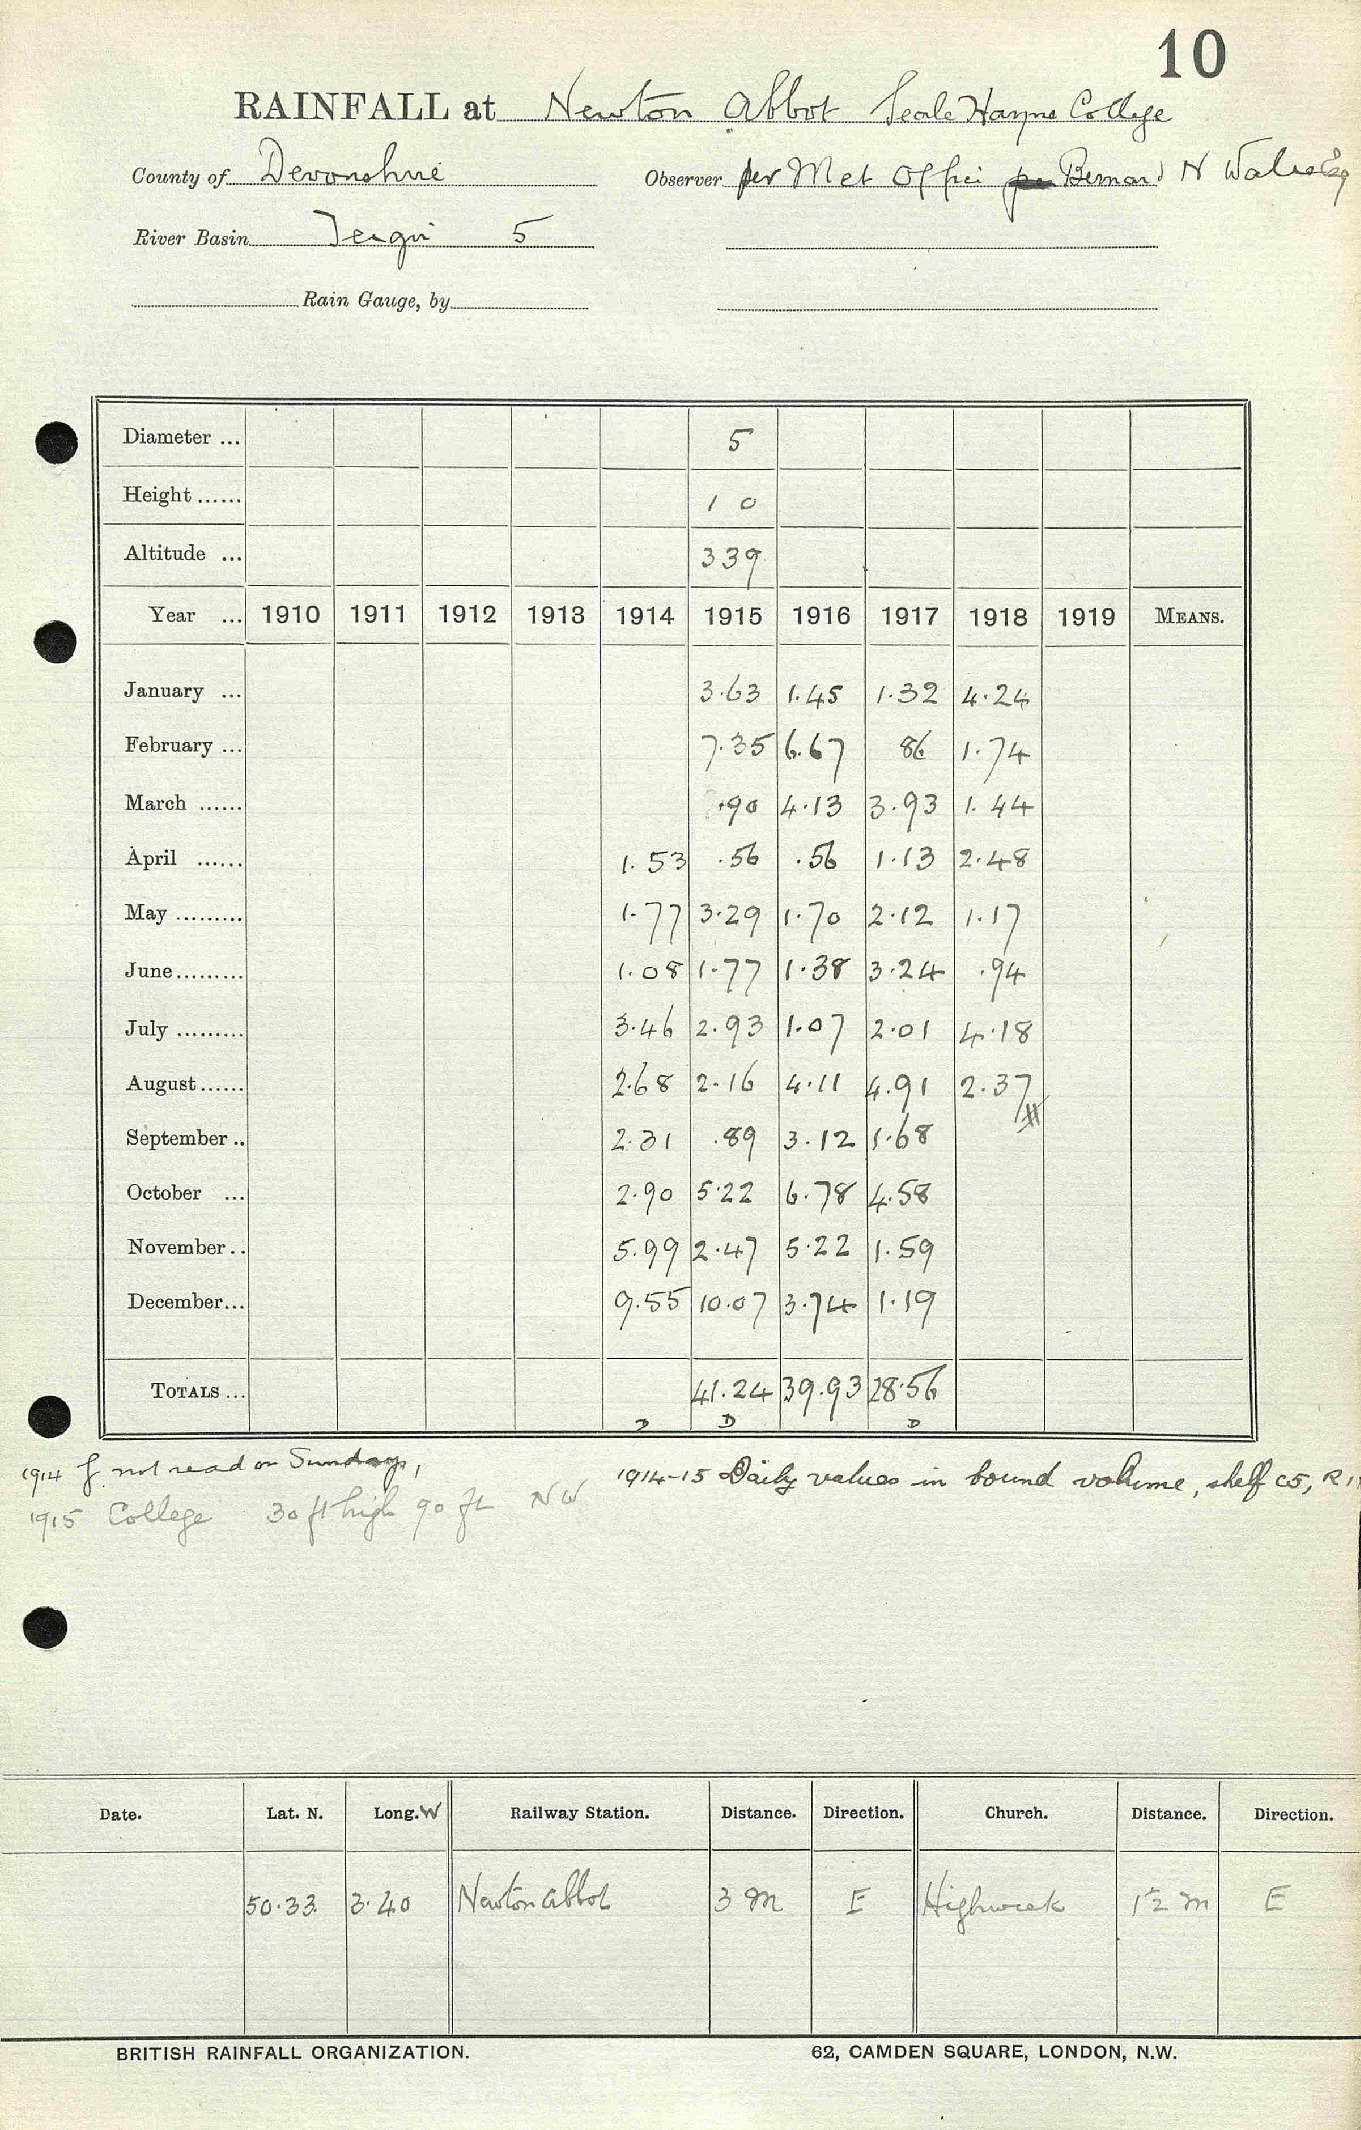 10
RAINFALL at Newton Abbot Seale Hayne College
County of Devonshire Observer per Met Office per Bernard N Wales Esq
River Basin Teign 5
Rain Gauge, by
Diameter ... 5
Height ...... 1 0
Altitude ... 339
Year ... 1910 1911 1912 1913 1914 1915 1916 1917 1918 1919 MEANS.
January ... 3.63 1.45 1.32 4.24
February ... 7.35 6.67 86 1.74
March ...... .90 4.13 3.93 1.44
April ...... 1.53 .56 .56 1.13 2.48
May ......... 1.77 3.29 1.70 2.12 1.17
June......... 1.08 1.77 1.38 3.24 .94
July ......... 3.46 2.93 1.07 2.01 4.18
August...... 2.68 2.16 4.11 4.91 2.37
September .. 2.31 .89 3.12 1.68
October ... 2.90 5.22 6.78 4.58
November.. 5.99 2.47 5.22 1.59
December... 9.55 10.07 3.74 1.19
TOTALS ... 41.24 39.93 28.56
D D D
1914 not read on Sundays, 1914-15 Daily values in bound volume, shelf C5, R
1915 College 30 ft high 90 ft NW
Date. Lat. N. Long. W Railway Station. Distance. Direction. Church. Distance. Direction.
50.33 3.40 Newton Abbot 3 M E Highweek 1½ M E
BRITISH RAINFALL ORGANIZATION. 62, CAMDEN SQUARE, LONDON, N.W.